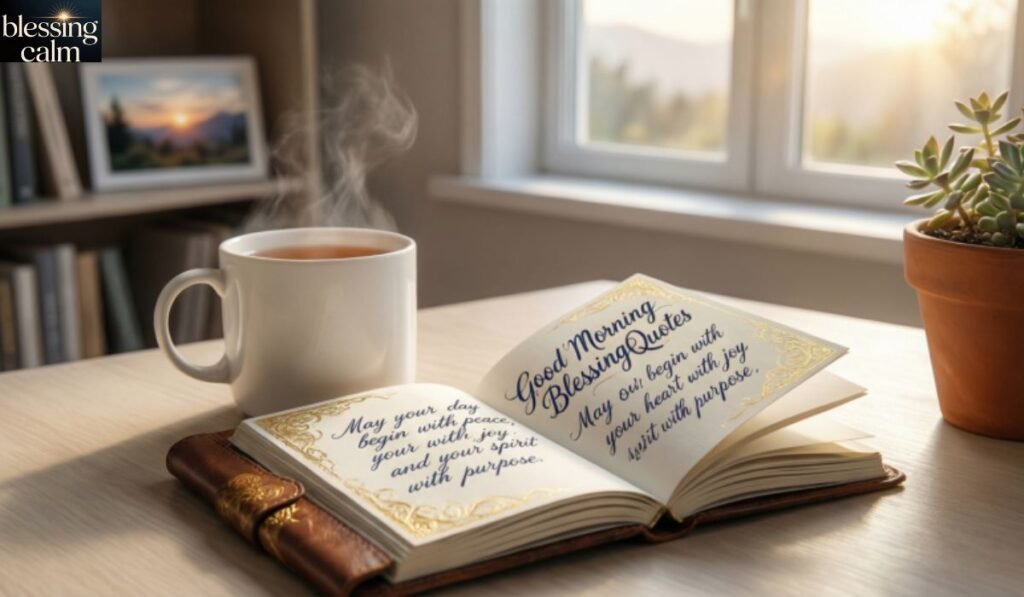 blessing
calm
May your day
begin with peace,
your with joy.
and your spirit
with purpose.
Good Morning
BlessingQuotes
May ou, begin with
your heart with joy
with purpose.